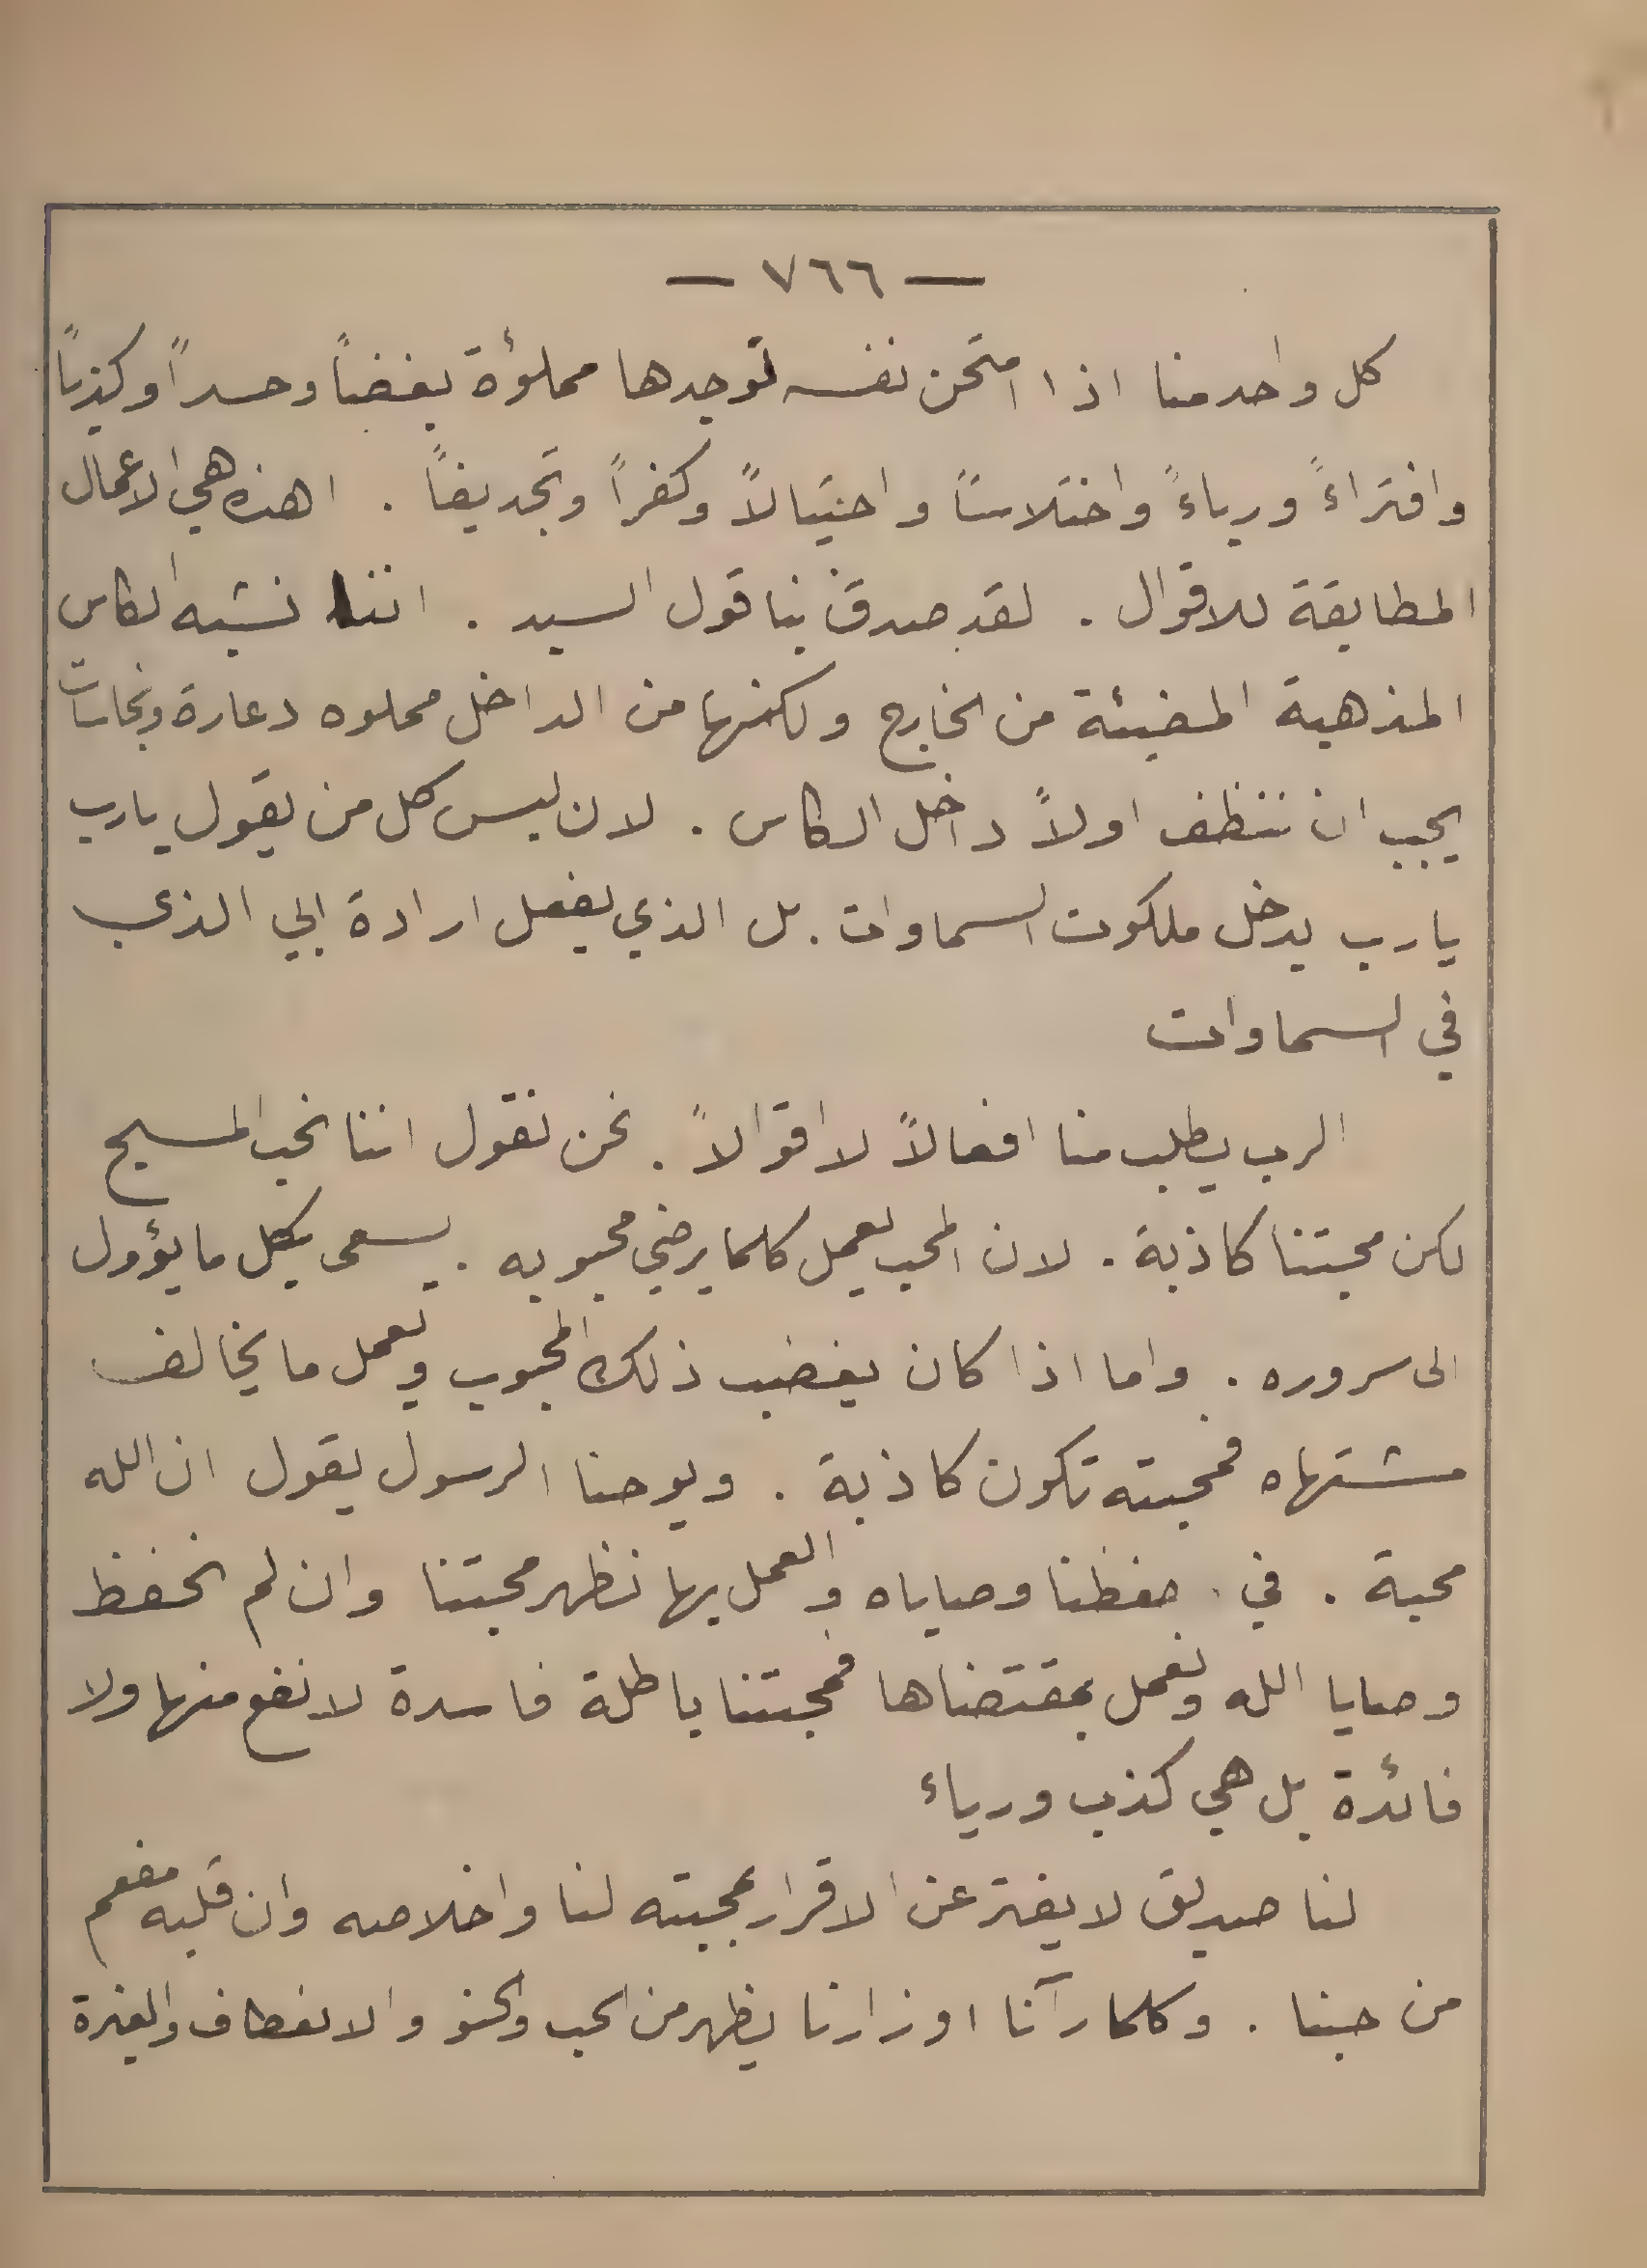 — ٧٦٦ —
كل واحد منا اذا امتحن نفسه لوجدها مملؤة بغضاً وحسداً وكذباً
وافتراءً ورياءً واختلاساً واحتيالاً وكفراً وتجديفاً . اهذه هي الاعمال
المطابقة للاقوال . لقد صدق فينا قول السيد . اننا نشبه الكاس
المذهبة المضيئة من الخارج ولكنها من الداخل مملوه دعارة ونجاسات
يجب ان ننظف اولاً داخل الكاس . لان ليس كل من يقول يارب
يارب يدخل ملكوت السماوات . بل الذي يفعل ارادة ابي الذي
في السماوات
الرب يطلب منا افعالاً لا اقوالاً . نحن نقول اننا نحب المسيح
لكن محبتنا كاذبة . لان المحب يعمل كلما يرضي محبوبه . يسعى بكل ما يؤول
الى سروره . واما اذا كان يغضب ذلك المحبوب ويعمل ما يخالف
مشتهاه فمحبته تكون كاذبة . ويوحنا الرسول يقول ان الله
محبة . في حفظنا وصاياه والعمل بها نظهر محبتنا وان لم نحفظ
وصايا الله ونعمل بمقتضاها فمحبتنا باطلة فاسدة لا نفع منها ولا
فائدة بل هي كذب ورياء
لنا صديق لا يفتر عن الاقرار بمحبته لنا واخلاصه وان قلبه مفعم
من حبنا . وكلما رآنا او زارنا يظهر من الحب والحنو والانعطاف والغيرة